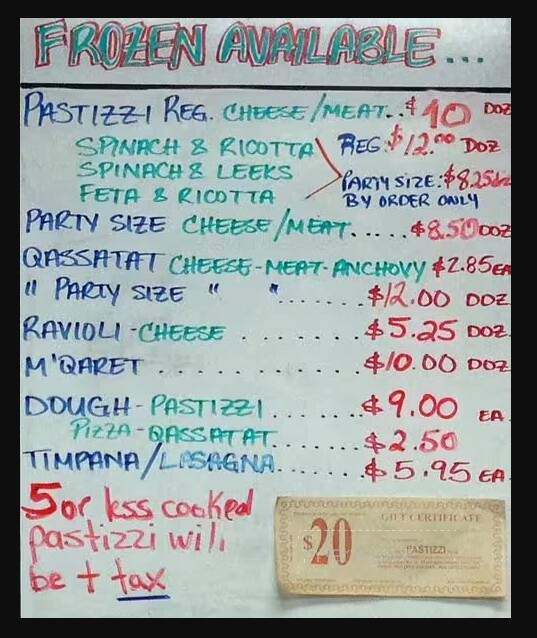 FROZEN AVAILABLE...
PASTIZZI REG. CHEESE/MEAT..$10 DOZ
SPINACH & RICOTTA REG. $12.00 DOZ
SPINACH & LEEKS
PARTY SIZE: $8.25doz
FETA & RICOTTA BY ORDER ONLY
PARTY SIZE CHEESE/MEAT.....$8.50 DOZ
QASSATAT CHEESE-MEAT-ANCHOVY $2.85 EA
" PARTY SIZE " ".......$12.00 DOZ
RAVIOLI-CHEESE ........$5.25 DOZ
M'QARET ...........$10.00 DOZ
DOUGH-PASTIZZI.......$9.00 EA
PIZZA-QASSATAT.......$2.50
TIMPANA/LASAGNA......$5.95 EA.
5 or less cooked
pastizzi will
be + tax
GIFT CERTIFICATE
$20
PASTIZZI